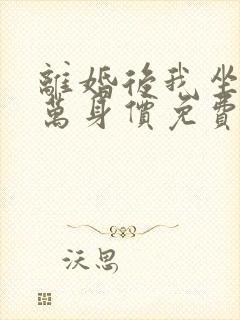 離婚後我坐
萬身價免費
沃思